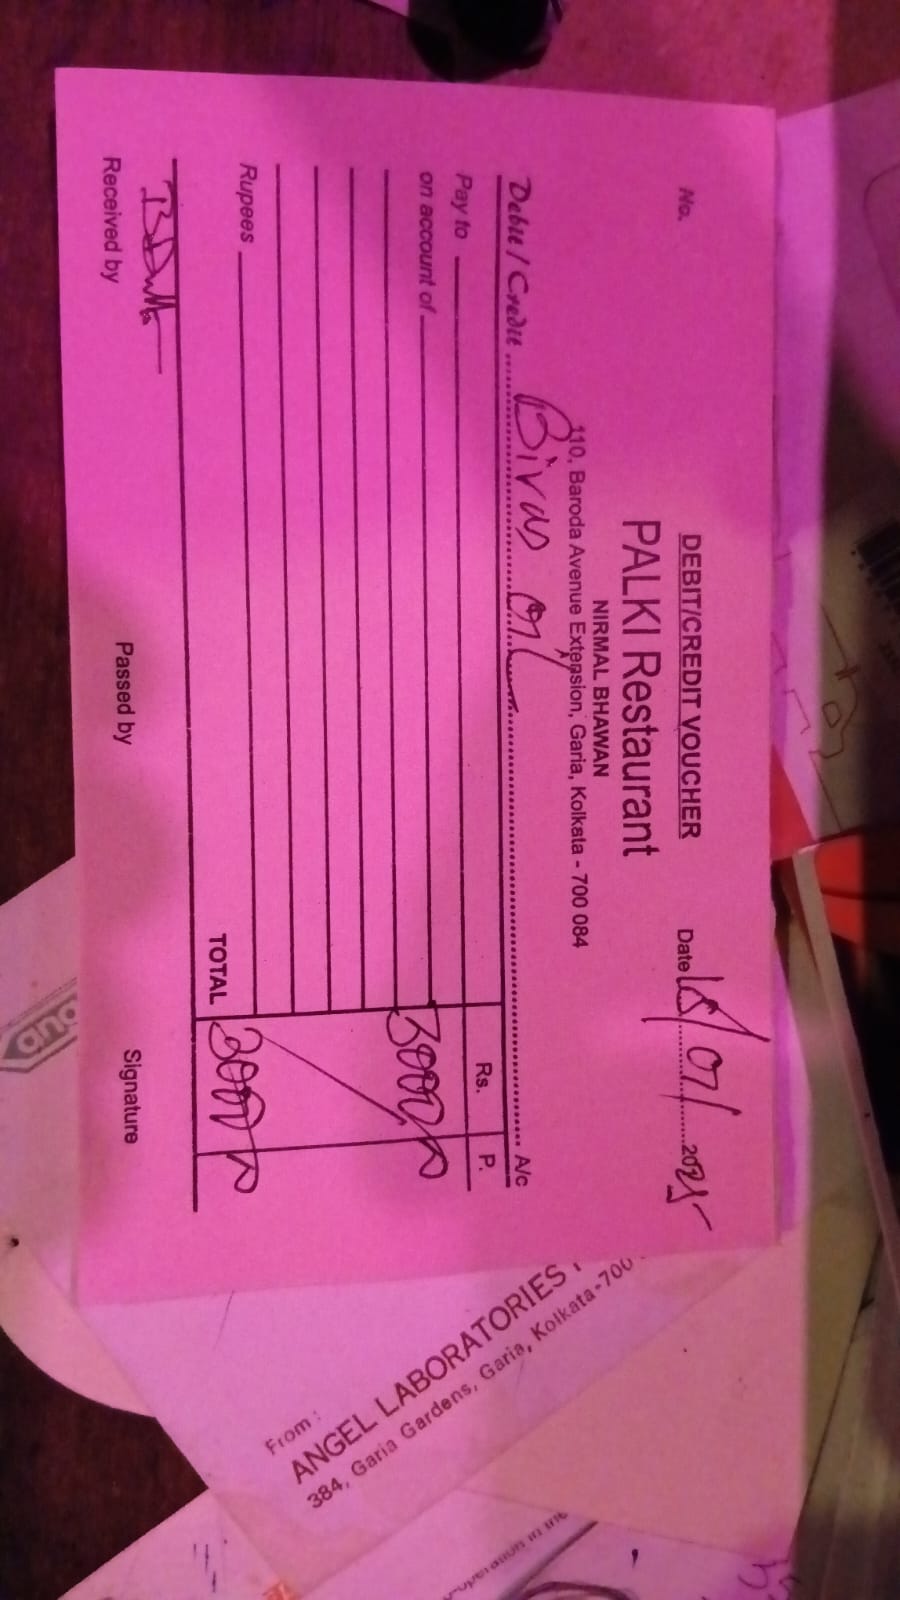 DEBIT/CREDIT VOUCHER
No.
PALKI Restaurant
Date 2025
NIRMAL BHAWAN
110, Baroda Avenue Extension, Garia, Kolkata - 700 084
Debit / Credit Bivas A/c
Pay to Rs. P.
on account of
3000
Rupees
TOTAL 3000
BDutta
Received by Passed by Signature
From :
ANGEL LABORATORIES
384, Garia Gardens, Garia, Kolkata-700